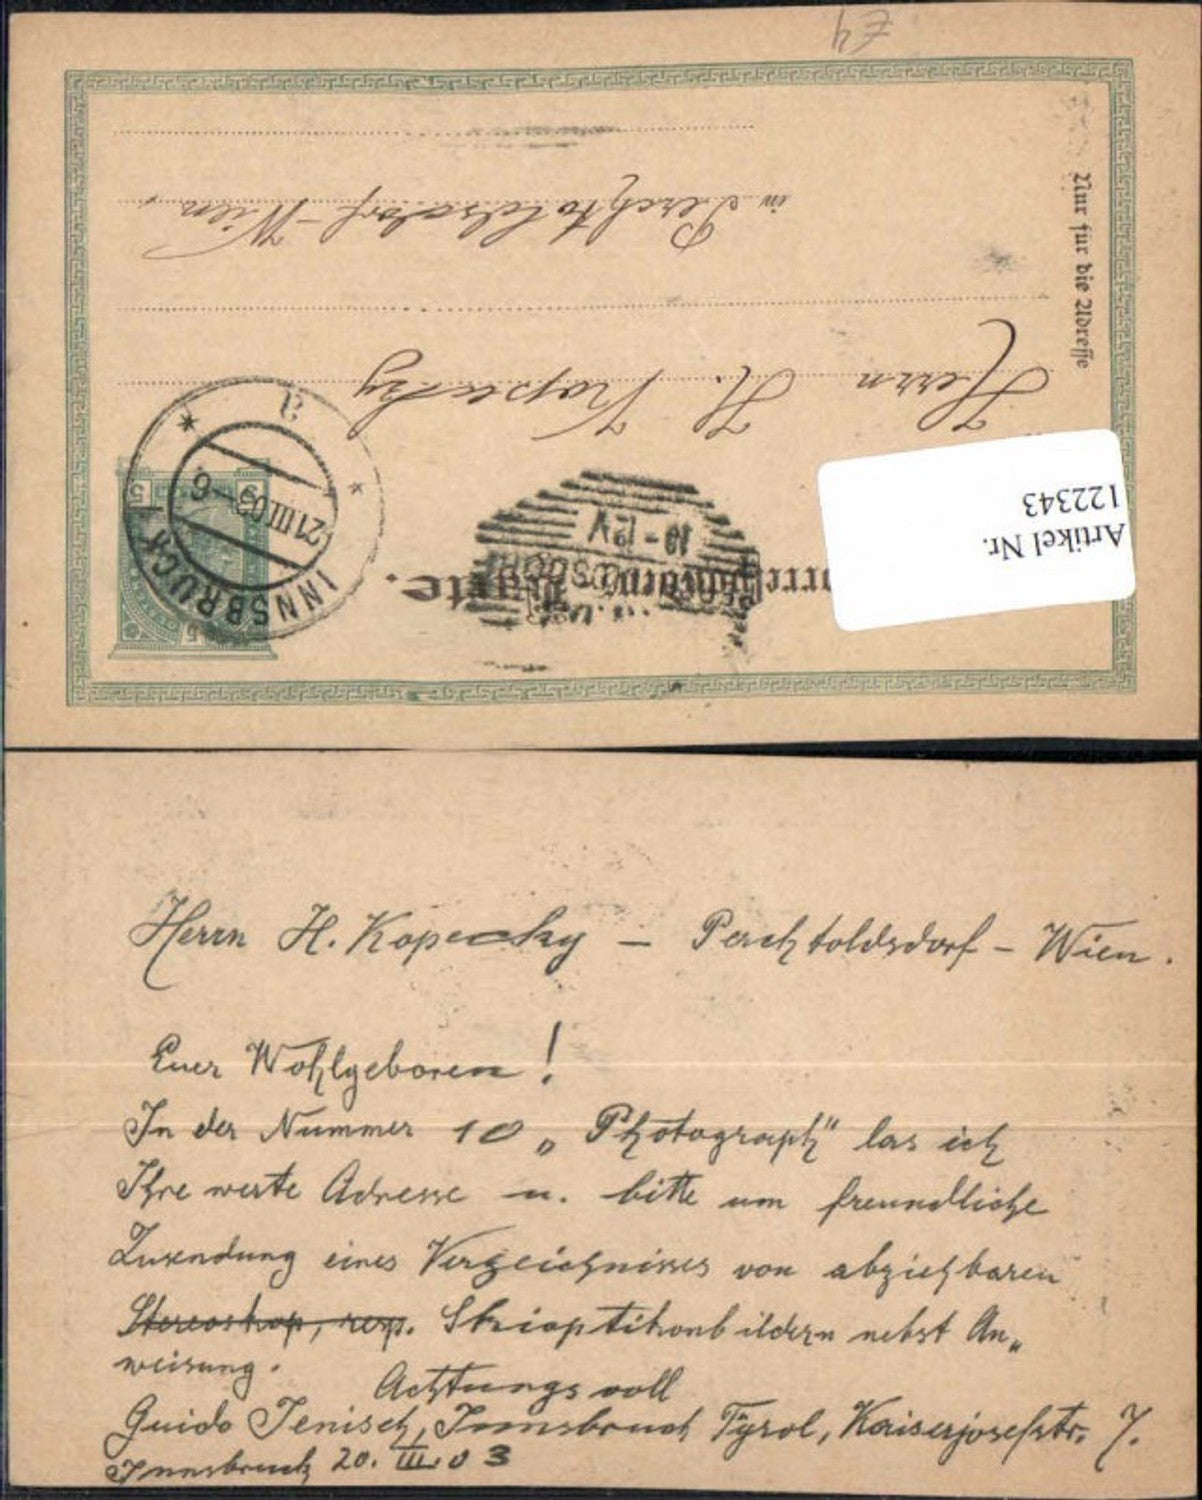 E4
Nur für die Adresse
Artikel Nr.
122343
INNSBRUCK
21 III 03 - 6
5
Karte.
10-12V
Herrn H. Kopecky
in Perchtoldsdorf-Wien,
Herrn H. Kopecky – Perchtoldsdorf – Wien.
Euer Wohlgeboren!
In der Nummer 10 „Photograph" las ich
Ihre werte Adresse u. bitte um freundliche
Zusendung eines Verzeichnisses von abziehbaren
Stereoskop, resp. Skioptikonbildern nebst An„
weisung.
Achtungsvoll
Guido Jenisch, Innsbruck Tyrol, Kaiserjosefstr. 7.
Innsbruck 20. III. 03